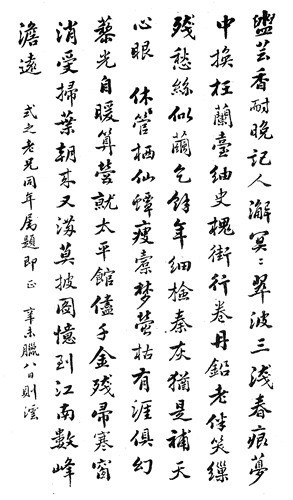 蠹芸香耐晚記人澥冥〻翠波三淺春痕夢
中換枉蘭臺紬史槐街行卷丹鉛老伴笑繅
殘愁絲似繭乞餘年細檢秦灰猶是補天
心眼 休管栖仙蟫瘦橐梦螢枯有涯俱幻
藜光自暖算營就太平館儘千金殘帚寒窗
消受掃葉朝來又滿莫披圖憶到江南數峰
澹遠 式之老兄同年属題即正 辛未臘八日則澐